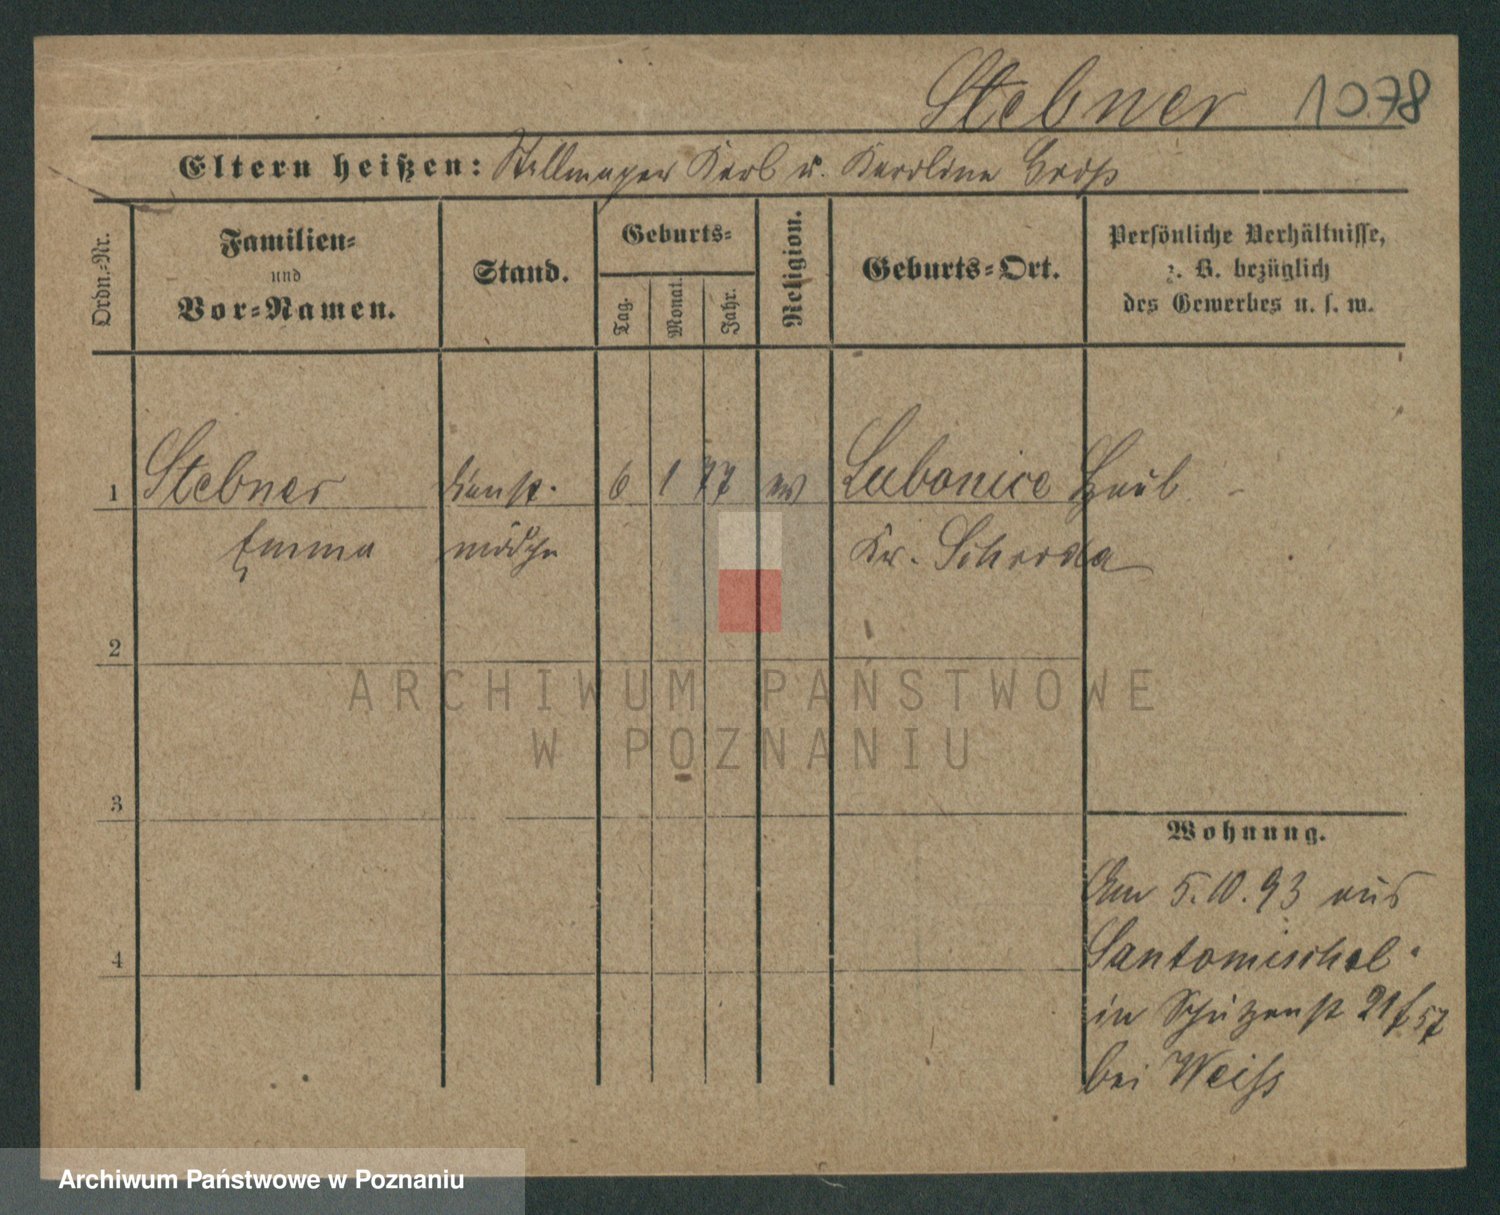 Stebner 1078
Eltern heißen: Stellmacher Karl u. Karoline Groß
Ordn.-Nr.
Familien-
und
Vor-Namen.
Stand.
Geburts-
Tag.
Monat.
Jahr.
Religion.
Geburts-Ort.
Persönliche Verhältnisse,
z. B. bezüglich
des Gewerbes u. s. w.
1 Stebner Dienst- 6 1 77 ev Lubonice
Emma mädchen Kr. Schroda
2
3
4
Wohnung.
Am 5.10.93 aus
Santomischel
in Schützenst
bei Weiss
ARCHIWUM PAŃSTWOWE
W POZNANIU
Archiwum Państwowe w Poznaniu